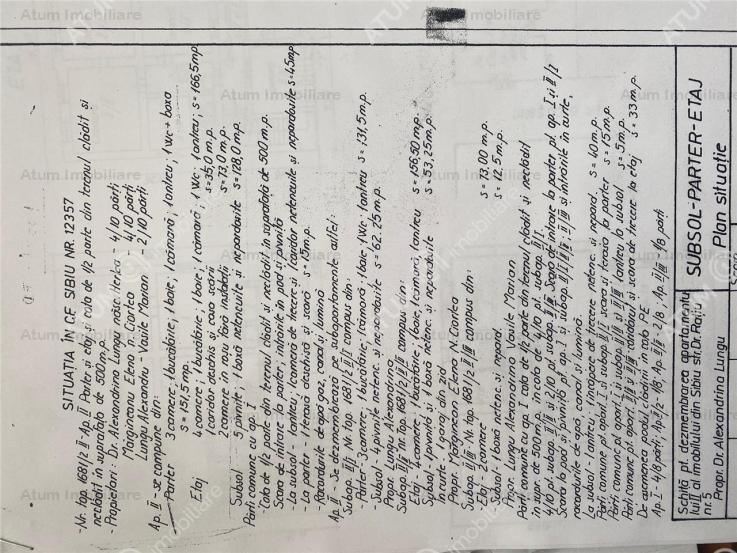 SITUAȚIA ÎN CF SIBIU NR. 12357
- Nr. top. 1681/2 II - Ap. II Parter și etaj și cota de 1/2 parte din terenul clădit și
neclădit în suprafață de 500 m.p.
- Propr. Dr. Alexandrina Lungu născ. - 4/10 părți
Mărgineanu Elena n. Ciortea - 4/10 părți
Lungu Alexandru - Vasile Marian - 2/10 părți
Ap. II - se compune din:
Parter 3 camere; 1 bucătărie; 1 baie; 1 cămară; 1 antreu; 1 Wc + boxa
S = 151,5 mp.
Etaj 4 camere; 1 bucătărie; 1 baie; 1 cămară; 1 Wc; 1 antreu; S = 166,5 mp
coridor deschis și casa scării S = 35,0 m.p.
2 camere în roșu fără instalații S = 73,0 m.p.
Subsol 5 pivnițe; 1 boxă netencuite și nepardosite S = 128,0 m.p.
Părți comune cu ap. I
- Cota de 1/2 parte din terenul clădit și neclădit în suprafață de 500 m.p.
Scara de intrare la parter; intrările în pod și pivniță
- La subsol - 1 antreu; 1 camera de trecere și 1 coridor netencuite și nepardosite S = 45 mp
- La parter - 1 terasă deschisă și scară S = 15 m.p.
- Racordurile de apă gaz, canal și lumină
Ap. II - Se dezmembrează pe subapartamente astfel:
Subap. II/I Nr. top. 1681/2 II/I compus din:
Parter - 3 camere; 1 bucătărie; 1 cămară; 1 baie; 1 Wc; 1 antreu S = 131,5 m.p.
- Subsol - 4 pivnițe netenc. și nepardosite S = 62.25 m.p.
Propr. Lungu Alexandrina
Subap. II/II nr. top. 1681/2 II/II compus din:
Etaj - 4 camere; 1 bucătărie; 1 baie; 1 cămară, 1 antreu S = 156,50 m.p.
Subsol - 1 pivniță și 1 boxă netenc. și nepardosite S = 53,25 m.p.
În curte - 1 garaj din zid
Propr. Mărginean Elena N. Ciortea
Subap. II/III - Nr. top. 1681/2 II/III compus din:
- Etaj - 2 camere S = 73,00 m.p.
Subsol 1 boxă netenc. și nepard. S = 12,5 m.p.
Propr. Lungu Alexandrina Vasile Marian
Părți comune cu ap. I cota de 1/2 parte din terenul clădit și neclădit
în supr. de 500 m.p. în cota de 4/10 pt. subap. II/I
4/10 pt. subap. II/II și 2/10 pt. subap. II/III. Scara de intrare la parter pt. ap. I și II/I
Scara la pod și pivniță pt. ap. I și subap. II/I II/II II/III și intrările în curte,
racordurile de apă, canal și lumină.
La subsol - 1 antreu; 1 încăpere de trecere netenc. și nepard. S = 40 m.p.
Părți comune pt. apart. I și subap. II/I scara și terasa la parter S = 15 m.p.
Părți comune pt. I și subap. II/II și II/III 1 antreu la subsol S = 5 m.p.
Părți comune pt. apart. II/II și II/III podului și scara de trecere la etaj S = 33 m.p.
De asemenea podul clădirii în cota PE
Ap. I - 4/8 părți; Ap. II/I - 1/8; Ap. II/II - 2/8; Ap. II/III - 1/8 părți
Schiță pt. dezmembrarea apartamentu
lui II al imobilului din Sibiu str. Dr. Rațiu
nr. 5
SUBSOL-PARTER-ETAJ
Propr. Dr. Alexandrina Lungu
Plan situație
Scara
Atum Imobiliare